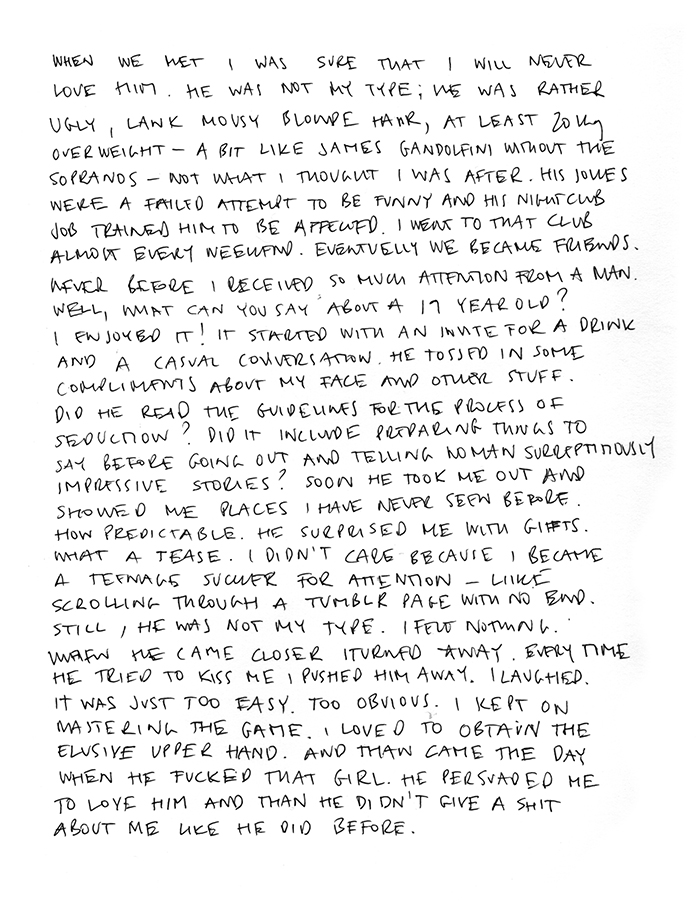 WHEN WE MET I WAS SURE THAT I WILL NEVER
LOVE HIM. HE WAS NOT MY TYPE; HE WAS RATHER
UGLY, LANK MOUSY BLONDE HAIR, AT LEAST 20 Kg
OVERWEIGHT – A BIT LIKE JAMES GANDOLFINI WITHOUT THE
SOPRANOS – NOT WHAT I THOUGHT I WAS AFTER. HIS JOKES
WERE A FAILED ATTEMPT TO BE FUNNY AND HIS NIGHTCLUB
JOB TRAINED HIM TO BE AFFECTED. I WENT TO THAT CLUB
ALMOST EVERY WEEKEND. EVENTUELLY WE BECAME FRIENDS.
NEVER BEFORE I RECEIVED SO MUCH ATTENTION FROM A MAN.
WELL, WHAT CAN YOU SAY ABOUT A 17 YEAR OLD?
I ENJOYED IT! IT STARTED WITH AN INVITE FOR A DRINK
AND A CASUAL CONVERSATION. HE TOSSED IN SOME
COMPLIMENTS ABOUT MY FACE AND OTHER STUFF.
DID HE READ THE GUIDELINES FOR THE PROCESS OF
SEDUCTION? DID IT INCLUDE PREPARING THINGS TO
SAY BEFORE GOING OUT AND TELLING WOMAN SURREPTITIOUSLY
IMPRESSIVE STORIES? SOON HE TOOK ME OUT AND
SHOWED ME PLACES I HAVE NEVER SEEN BEFORE.
HOW PREDICTABLE. HE SURPRISED ME WITH GIFTS.
WHAT A TEASE. I DIDN'T CARE BECAUSE I BECAME
A TEENAGE SUCKER FOR ATTENTION – LIKE
SCROLLING THROUGH A TUMBLR PAGE WITH NO END.
STILL, HE WAS NOT MY TYPE. I FELT NOTHING.
WHEN HE CAME CLOSER I TURNED AWAY. EVERY TIME
HE TRIED TO KISS ME I PUSHED HIM AWAY. I LAUGHED.
IT WAS JUST TOO EASY. TOO OBVIOUS. I KEPT ON
MASTERING THE GAME. I LOVED TO OBTAIN THE
ELUSIVE UPPER HAND. AND THAN CAME THE DAY
WHEN HE FUCKED THAT GIRL. HE PERSUADED ME
TO LOVE HIM AND THAN HE DIDN'T GIVE A SHIT
ABOUT ME LIKE HE DID BEFORE.